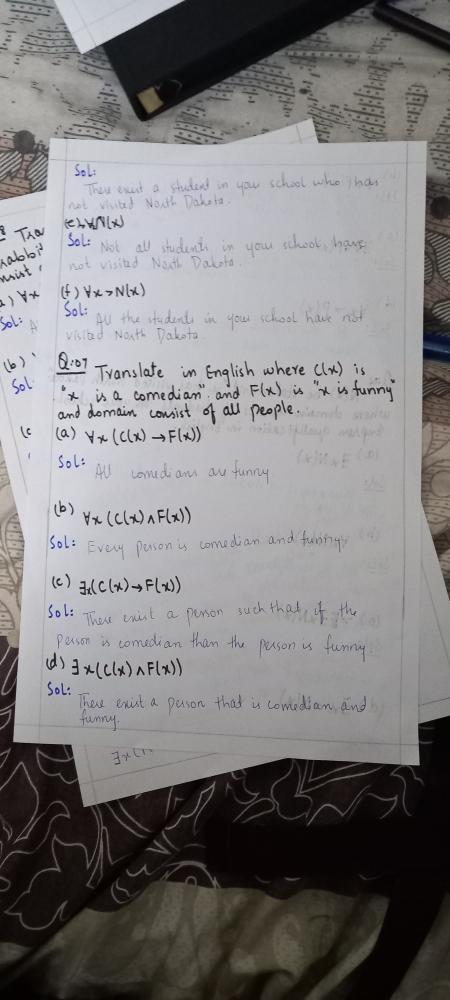 Sol:
There exist a student in your school who has
not visited North Dakota.
(e) ¬∀N(x)
Sol: Not all students in your school have
not visited North Dakota.
(f) ∀x>N(x)
Sol:
All the students in your school have not
visited North Dakota.
Q:07 Translate in English where C(x) is
"x is a comedian" and F(x) is "x is funny"
and domain consist of all people.
(a) ∀x (C(x) → F(x))
Sol:
All comedians are funny.
(b) ∀x (C(x) ∧ F(x))
Sol: Every person is comedian and funny.
(c) ∃x(C(x) → F(x))
Sol: There exist a person such that, if the
person is comedian than the person is funny
(d) ∃x(C(x) ∧ F(x))
Sol:
There exist a person that is comedian and
funny.
8 Tra
rabbit
) ∀x
Sol: A
(b)
Sol
(c
∃x(